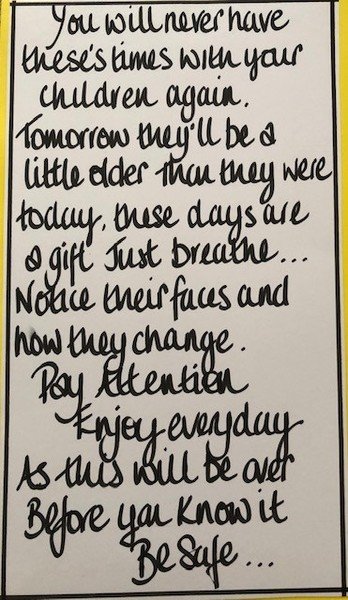 You will never have
these's times with your
children again.
Tomorrow they'll be a
little older than they were
today, these days are
a gift Just breathe...
Notice their faces and
how they change.
Pay Attention
Enjoy everyday
As this will be over
Before you Know it
Be Safe...